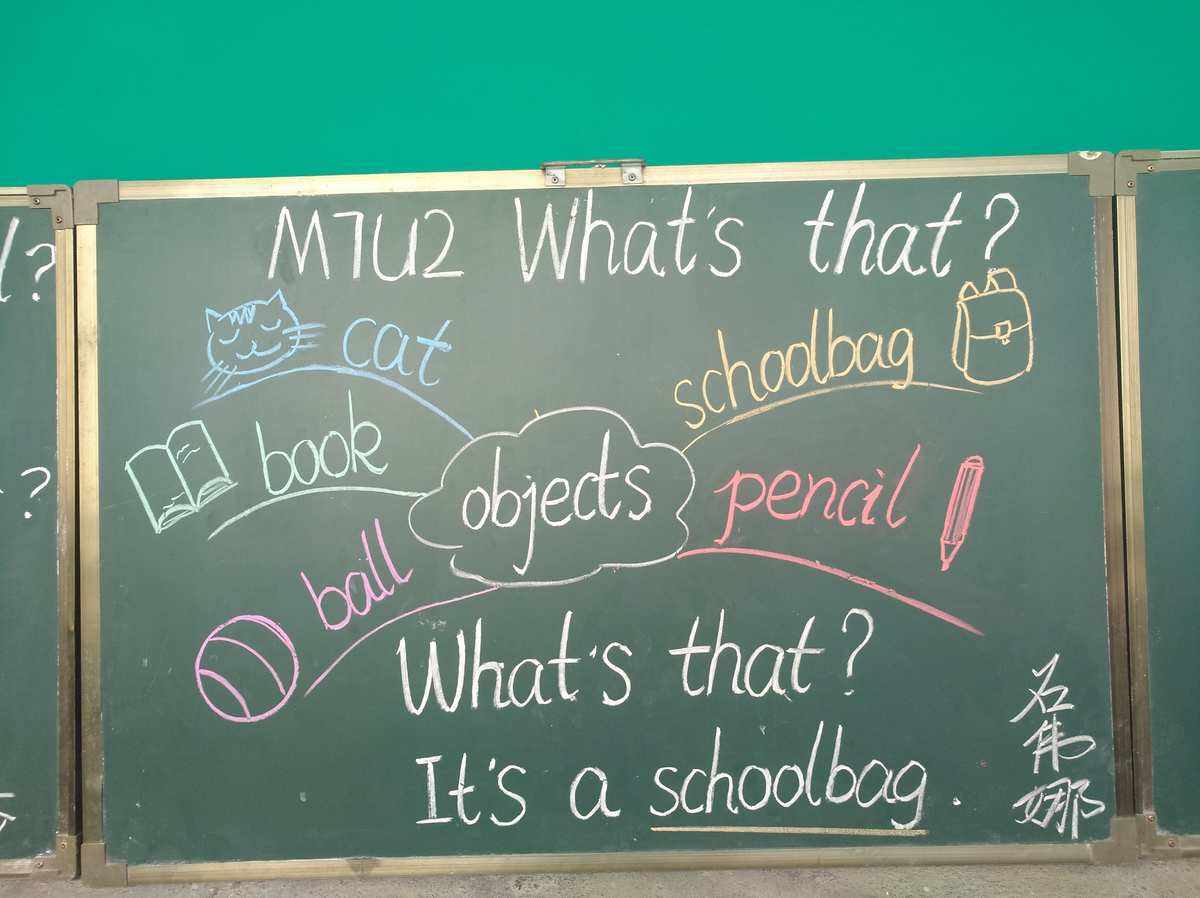 M7U2 What's that?
cat
schoolbag
book
objects
pencil
ball
What's that?
It's a schoolbag.
石伟娜